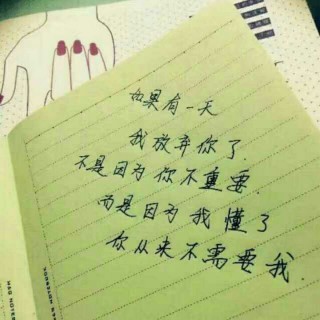 如果有一天
我放弃你了.
不是因为你不重要.
而是因为我懂了
你从来不需要我.